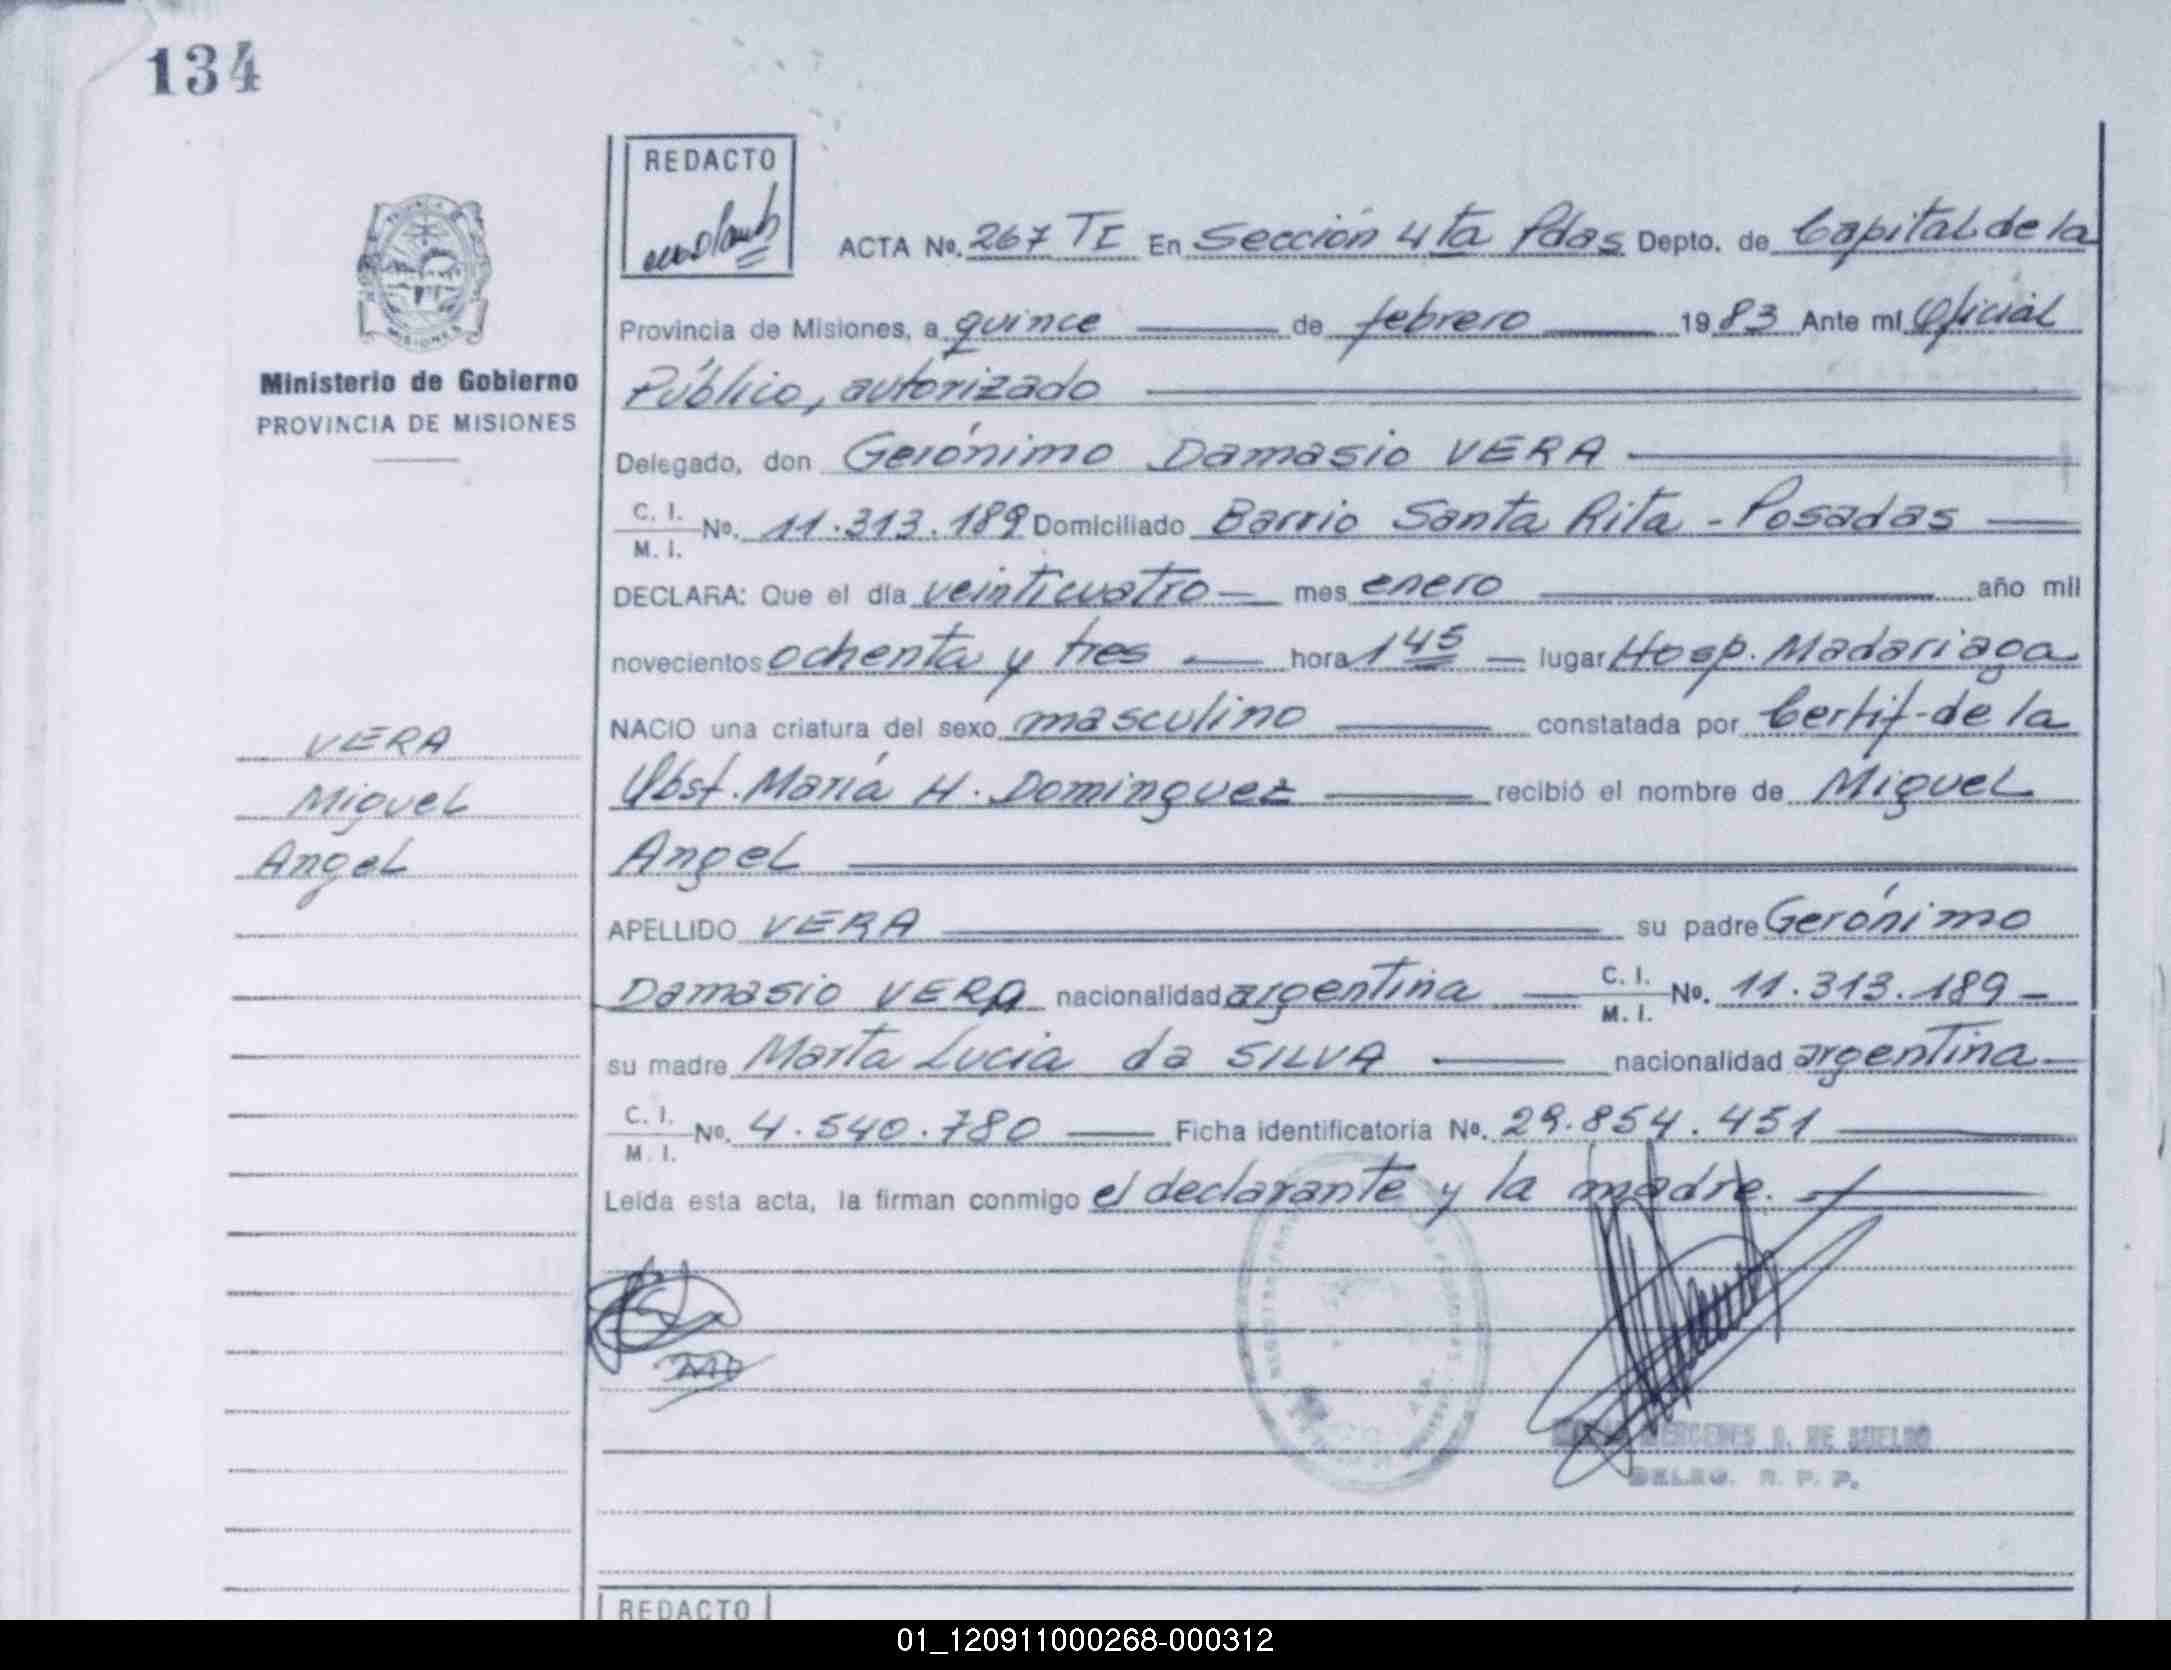 134
REDACTO
ACTA Nº. 267 TI En Sección 4ta Pdas Depto. de Capital de la
Provincia de Misiones, a quince de febrero 1983 Ante mi Oficial
Público, autorizado
Ministerio de Gobierno
PROVINCIA DE MISIONES
Delegado, don Gerónimo Damasio VERA
C. I.
M. I. Nº. 11.313.189 Domiciliado Barrio Santa Rita - Posadas
DECLARA: Que el día veinticuatro mes enero año mil
novecientos ochenta y tres hora 1 45 lugar Hosp. Madariaga
NACIO una criatura del sexo masculino constatada por Certif- de la
Obst. María H. Dominguez recibió el nombre de Miguel
Angel
VERA
Miguel
Angel
APELLIDO VERA su padre Gerónimo
Damasio VERA nacionalidad argentina C. I.
M. I. Nº. 11.313.189
su madre Marta Lucia da SILVA nacionalidad argentina
C. I.
M. I. Nº. 4.540.780 Ficha identificatoria Nº. 29.854.451
Leída esta acta, la firman conmigo el declarante y la madre.
MERCEDES
DELEG. R. P. P.
REDACTO
01_120911000268-000312